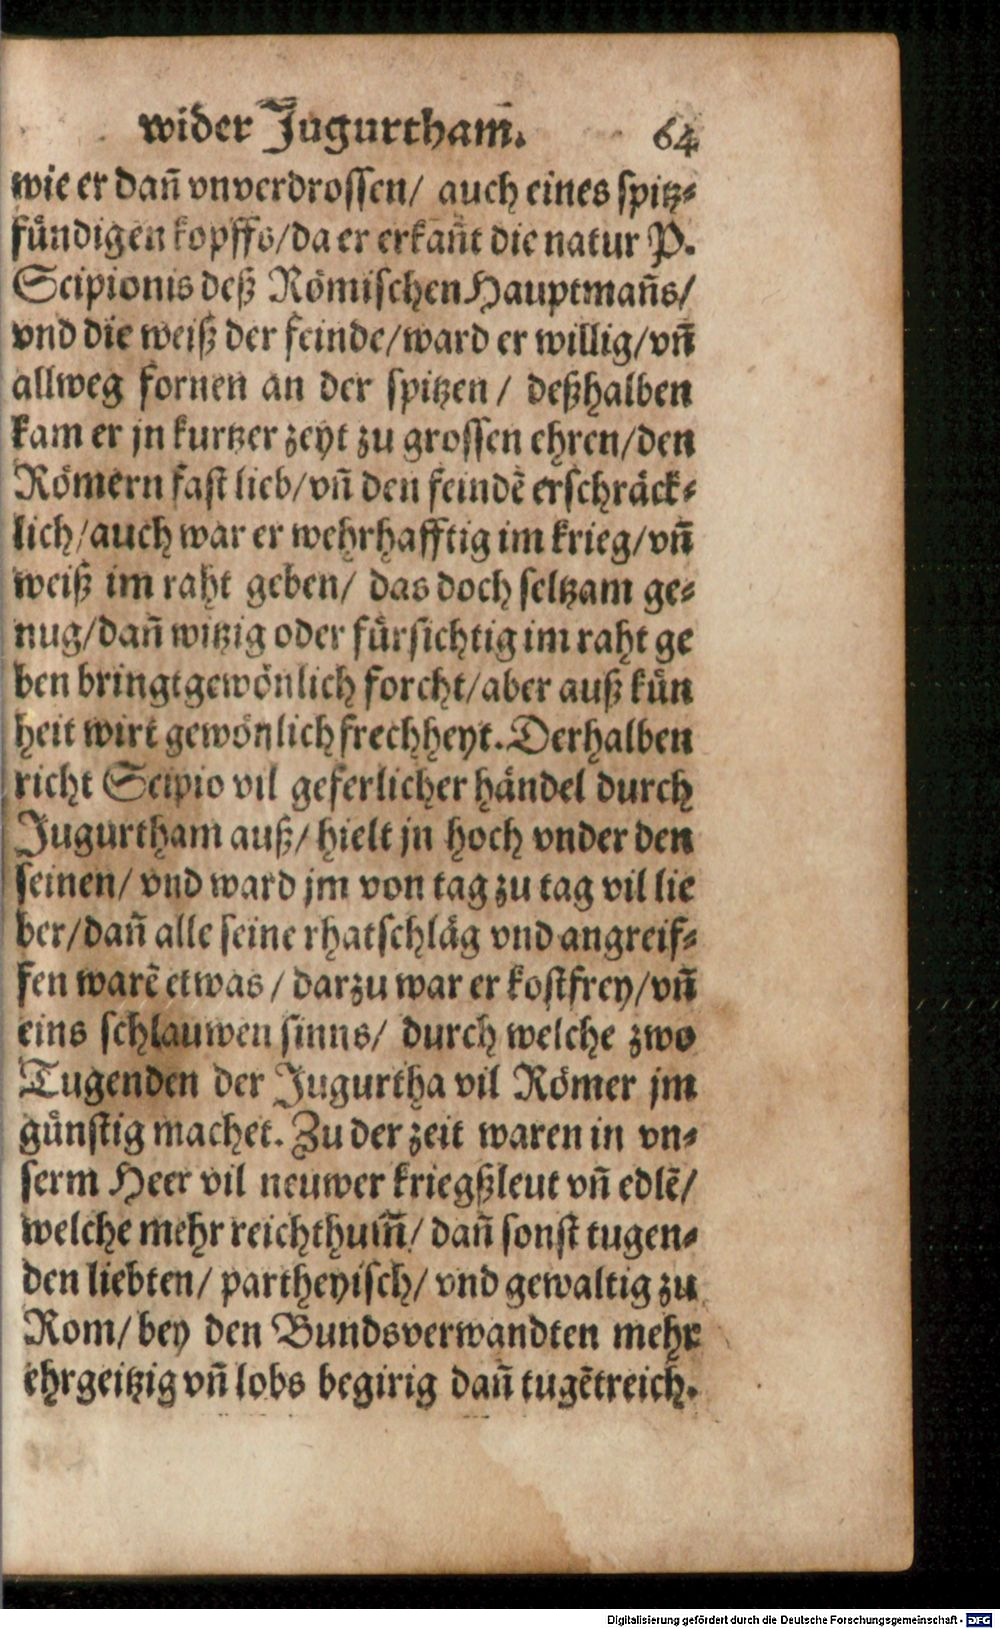 wider Jugurtham̃. 64
wie er dañ vnverdrossen/ auch eines spitz⸗
fündigen kopffs/da er erkañt die natur P.
Scipionis deß Römischen Hauptmañs/
vnd die weiß der feinde/ward er willig/vñ
allweg fornen an der spitzen / deßhalben
kam er jn kurtzer zeyt zu grossen ehren/den
Römern fast lieb/vñ den feindẽ erschräck⸗
lich/auch war er wehrhafftig im krieg/vñ
weiß im raht geben/ das doch seltzam ge⸗
nug/dañ witzig oder fürsichtig im raht ge
ben bringt gewönlich forcht/aber auß kün
heit wirt gewönlich frechheyt. Derhalben
richt Scipio vil geferlicher händel durch
Jugurtham auß/ hielt jn hoch vnder den
seinen/ vnd ward jm von tag zu tag vil lie
ber/dañ alle seine rhatschläg vnd angreif⸗
fen warẽ etwas / darzu war er kostfrey/vñ
eins schlauwen sinns/ durch welche zwo
Tugenden der Jugurtha vil Römer jm
günstig machet. Zu der zeit waren in vn⸗
serm Heer vil neuwer kriegßleut vñ edlẽ/
welche mehr reichthum̃/ dañ sonst tugen⸗
den liebten/ partheyisch/ vnd gewaltig zu
Rom/ bey den Bundsverwandten mehr
ehrgeitzig vñ lobs begirig dañ tugẽtreich.
Digitalisierung gefördert durch die Deutsche Forschungsgemeinschaft - DFG